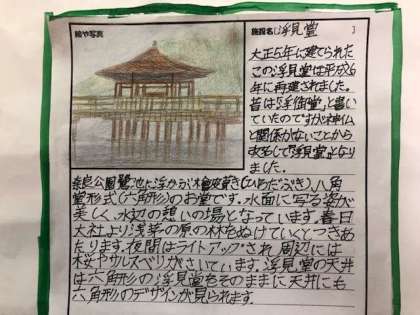 絵や写真
施設名〔浮見堂 〕
大正5年に建てられた
この浮見堂は平成6
年に再建されました。
昔は「浮御堂」と書い
ていたのですが神仏
と関係がないことから
改名して「浮見堂」となり
ました。
奈良公園鷺池に浮かぶ檜皮葺き(ひわだぶき)、八角
堂形式(六角形)のお堂です。水面に写る姿が
美しく、水辺の憩いの場となっています。春日
大社より浅茅の原の林をぬけていくとつきあ
たります。夜間はライトアップされ周辺には
桜やサルスベリがさいています。浮見堂の天井
は六角形の浮見堂をそのままに天井にも
六角形のデザインが見られます。